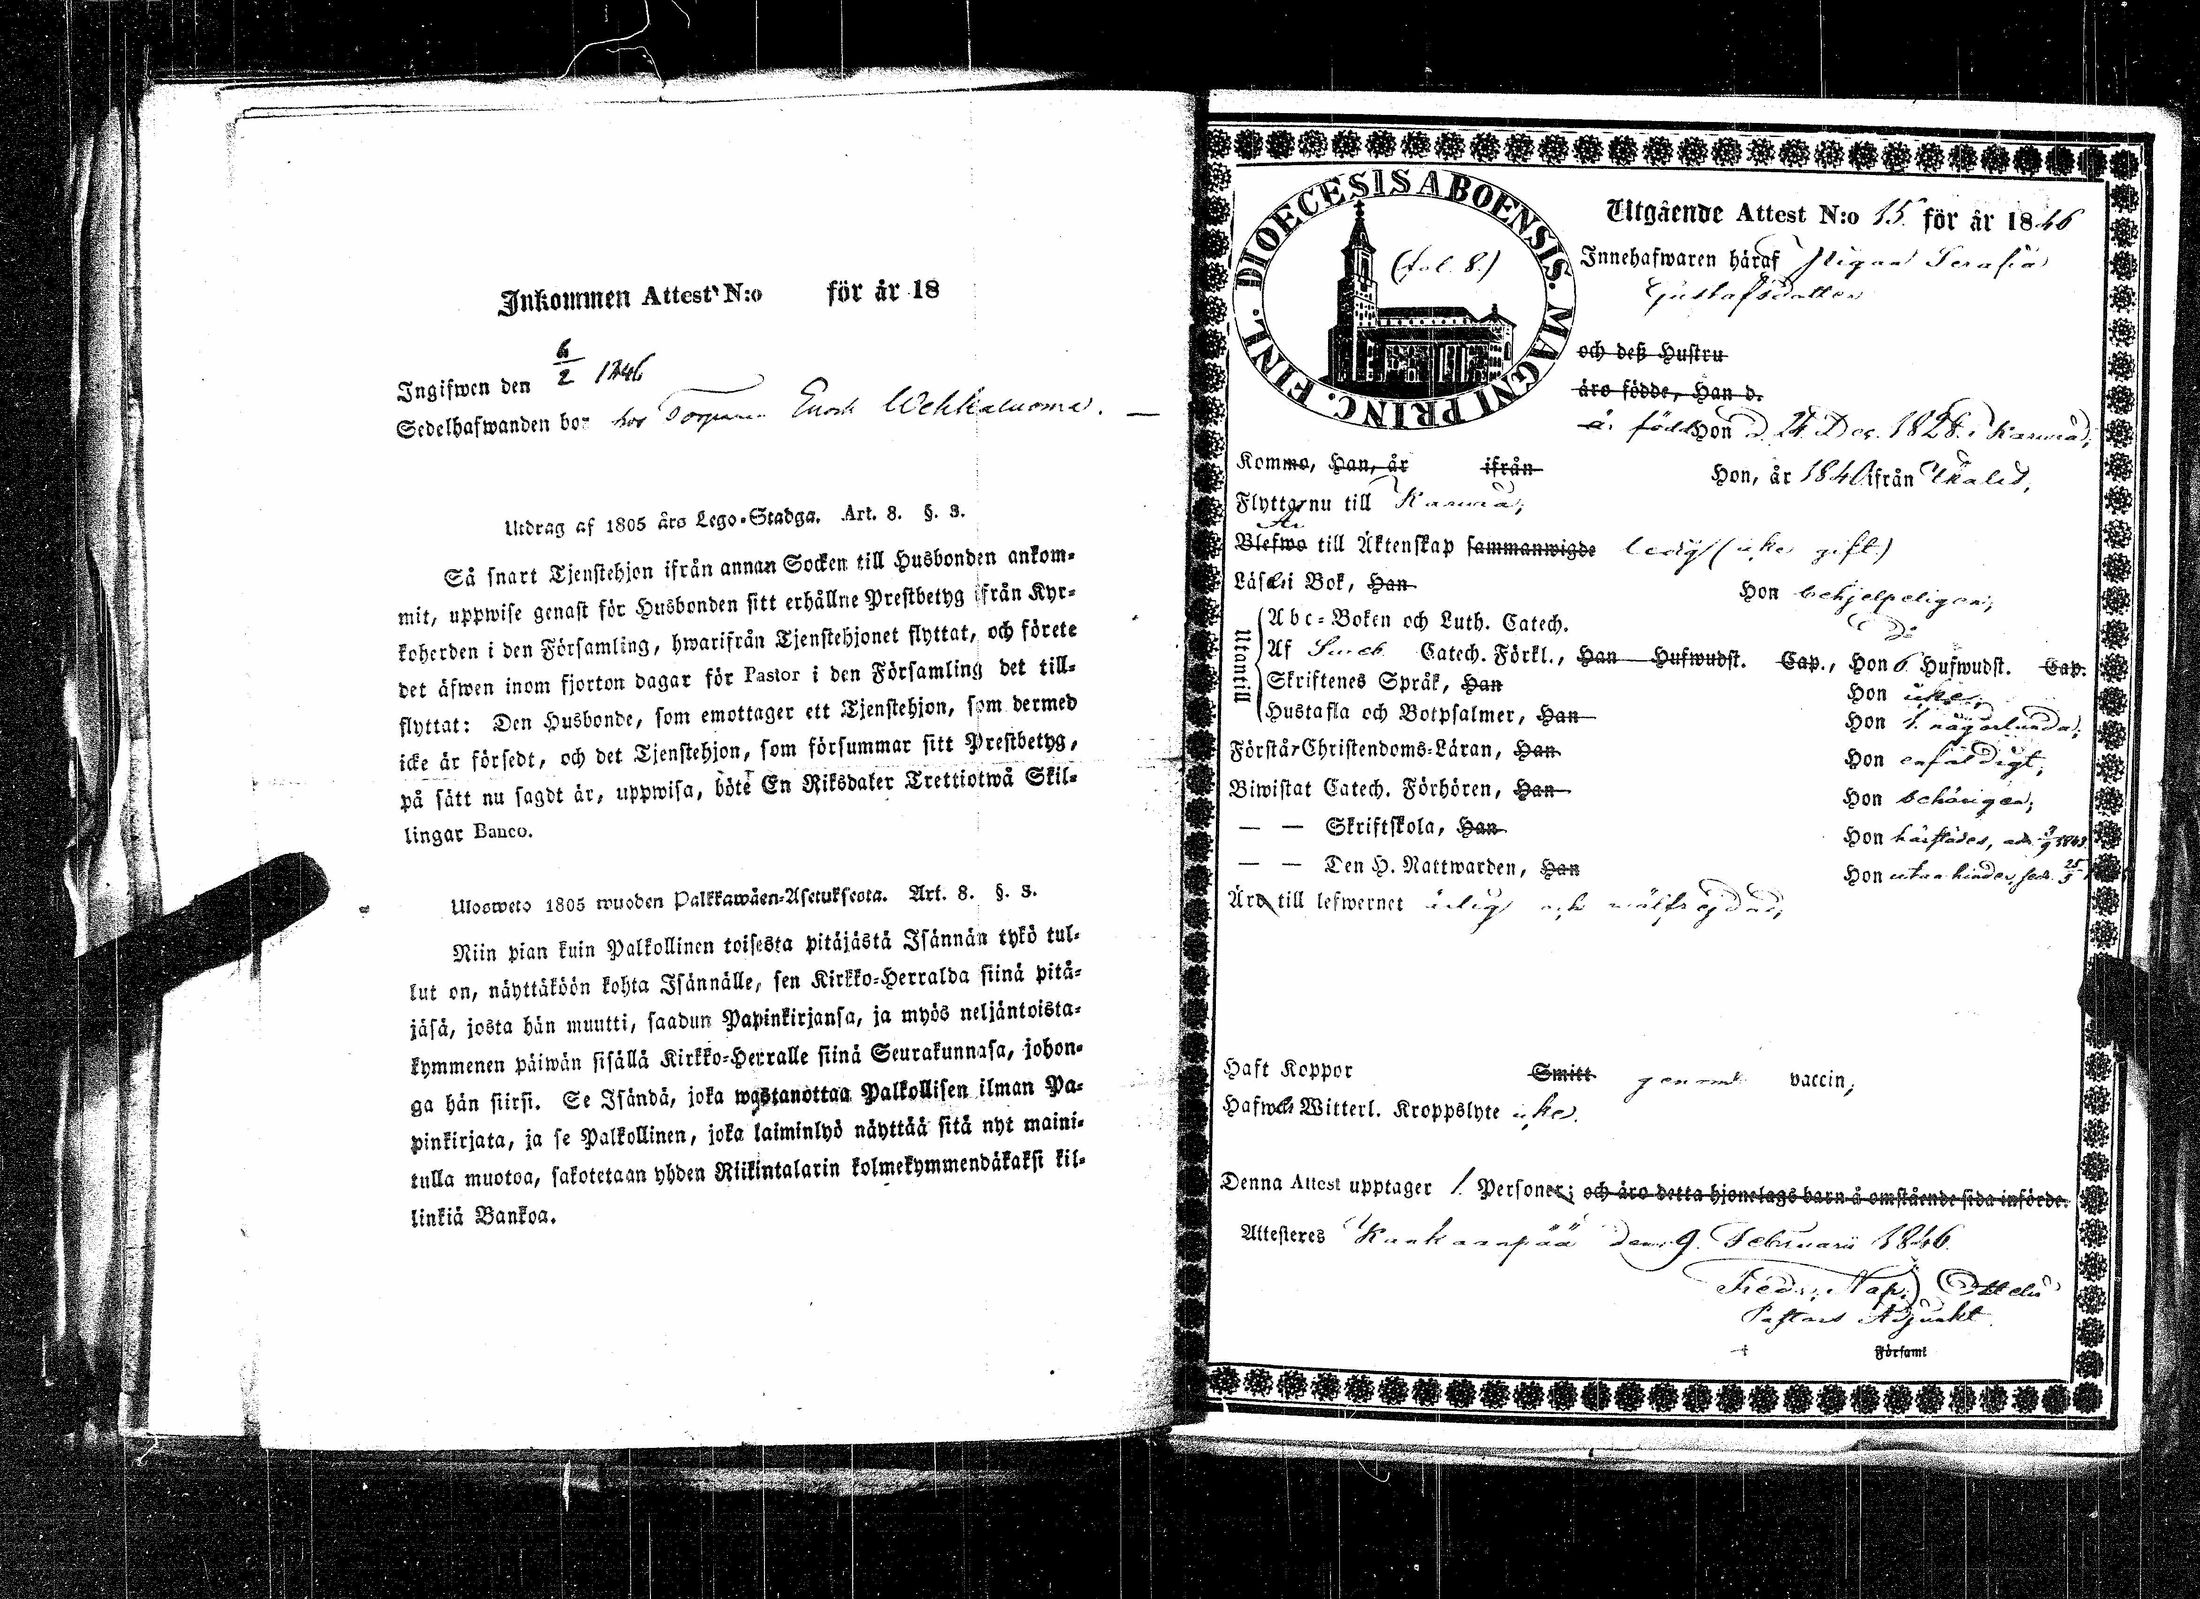 Inkommen Attest N:o för år 18
Ingifwen den 6/2 1846
Sedelhafwanden bor hos Torparen Enok Wehkaluoma.
Utdrag af 1805 års Lego-Stadga. Art. 8. §. 3.
Så snart Tjenstehjon ifrån annan Socken till Husbonden ankom-
mit, uppwise genast för Husbonden sitt erhållne Prestbetyg ifrån Kyr-
koherden i den Församling, hwarifrån Tjenstehjonet flyttat, och förete
det äfwen inom fjorton dagar för Pastor i den Församling det till-
flyttat: Den Husbonde, som emottager ett Tjenstehjon, som dermed
icke är försedt, och det Tjenstehjon, som försummar sitt Prestbetyg,
på sätt nu sagdt är, uppwisa, böte En Riksdaler Trettiotwå Skil-
lingar Banco.
Ulosweto 1805 wuoden Palkkawäen-Asetuksesta. Art. 8. §. 3.
Niin pian kuin Palkollinen toisesta pitäjästä Isännän tykö tul-
lut on, näyttäköön kohta Isännälle, sen Kirkko-Herralda siinä pitä-
jäsä, josta hän muutti, saadun Papinkirjansa, ja myös neljäntoista-
kymmenen päiwän sisällä Kirkko-Herralle siinä Seurakunnasa, johon-
ga hän siirsi. Se Isändä, joka wastanottaa Palkollisen ilman Pa-
pinkirjata, ja se Palkollinen, joka laiminlyö näyttää sitä nyt maini-
tulla muotoa, sakotetaan yhden Riikintalarin kolmekymmendäkaksi kil-
linkiä Bankoa.
DIOECESIS ABOENSIS. MAGNI PRINC. FINL.
(fol. 8.)
Utgående Attest N:o 15. för år 1846
Innehafwaren häraf Pigan Serafia
Gustafsdotter
och deß Hustru
äro födde, Han d.
är född Hon d. 24 Dec. 1828. i Karvia,
Kommo, Han, år ifrån Hon, år 1840 ifrån Ikalis,
Flyttar nu till Karvia,
Är
Blefwo till Äktenskap sammanwigde ledig (icke gift)
Läser i Bok, Han Hon behjelpeligen,
Utantill
Abc-Boken och Luth. Catech. do
Af Sveb. Catech. Förkl., Han Hufwudst. Cap., Hon 6 Hufwudst. Cap.
Skriftenes Språk, Han Hon icke,
Hustafla och Botpsalmer, Han Hon någorlunda,
Förstår Christendoms-Läran, Han Hon enfaldigt,
Biwistat Catech. Förhören, Han Hon behörigen,
— — Skriftskola, Han Hon härstädes,
— — Den H. Nattwarden, Han Hon utan hinder,
Äro till lefwernet ärlig och wälfrägdad,
Haft Koppor Smitt genom vaccin,
Hafwer Witterl. Kroppslyte icke.
Denna Attest upptager 1. Personer; och äro detta hjonelags barn å omstående sida införde.
Attesteras Kankaanpää den 9. Februarii 1846.
Fredr. Nap.
Pastors Adjunkt.
Församl